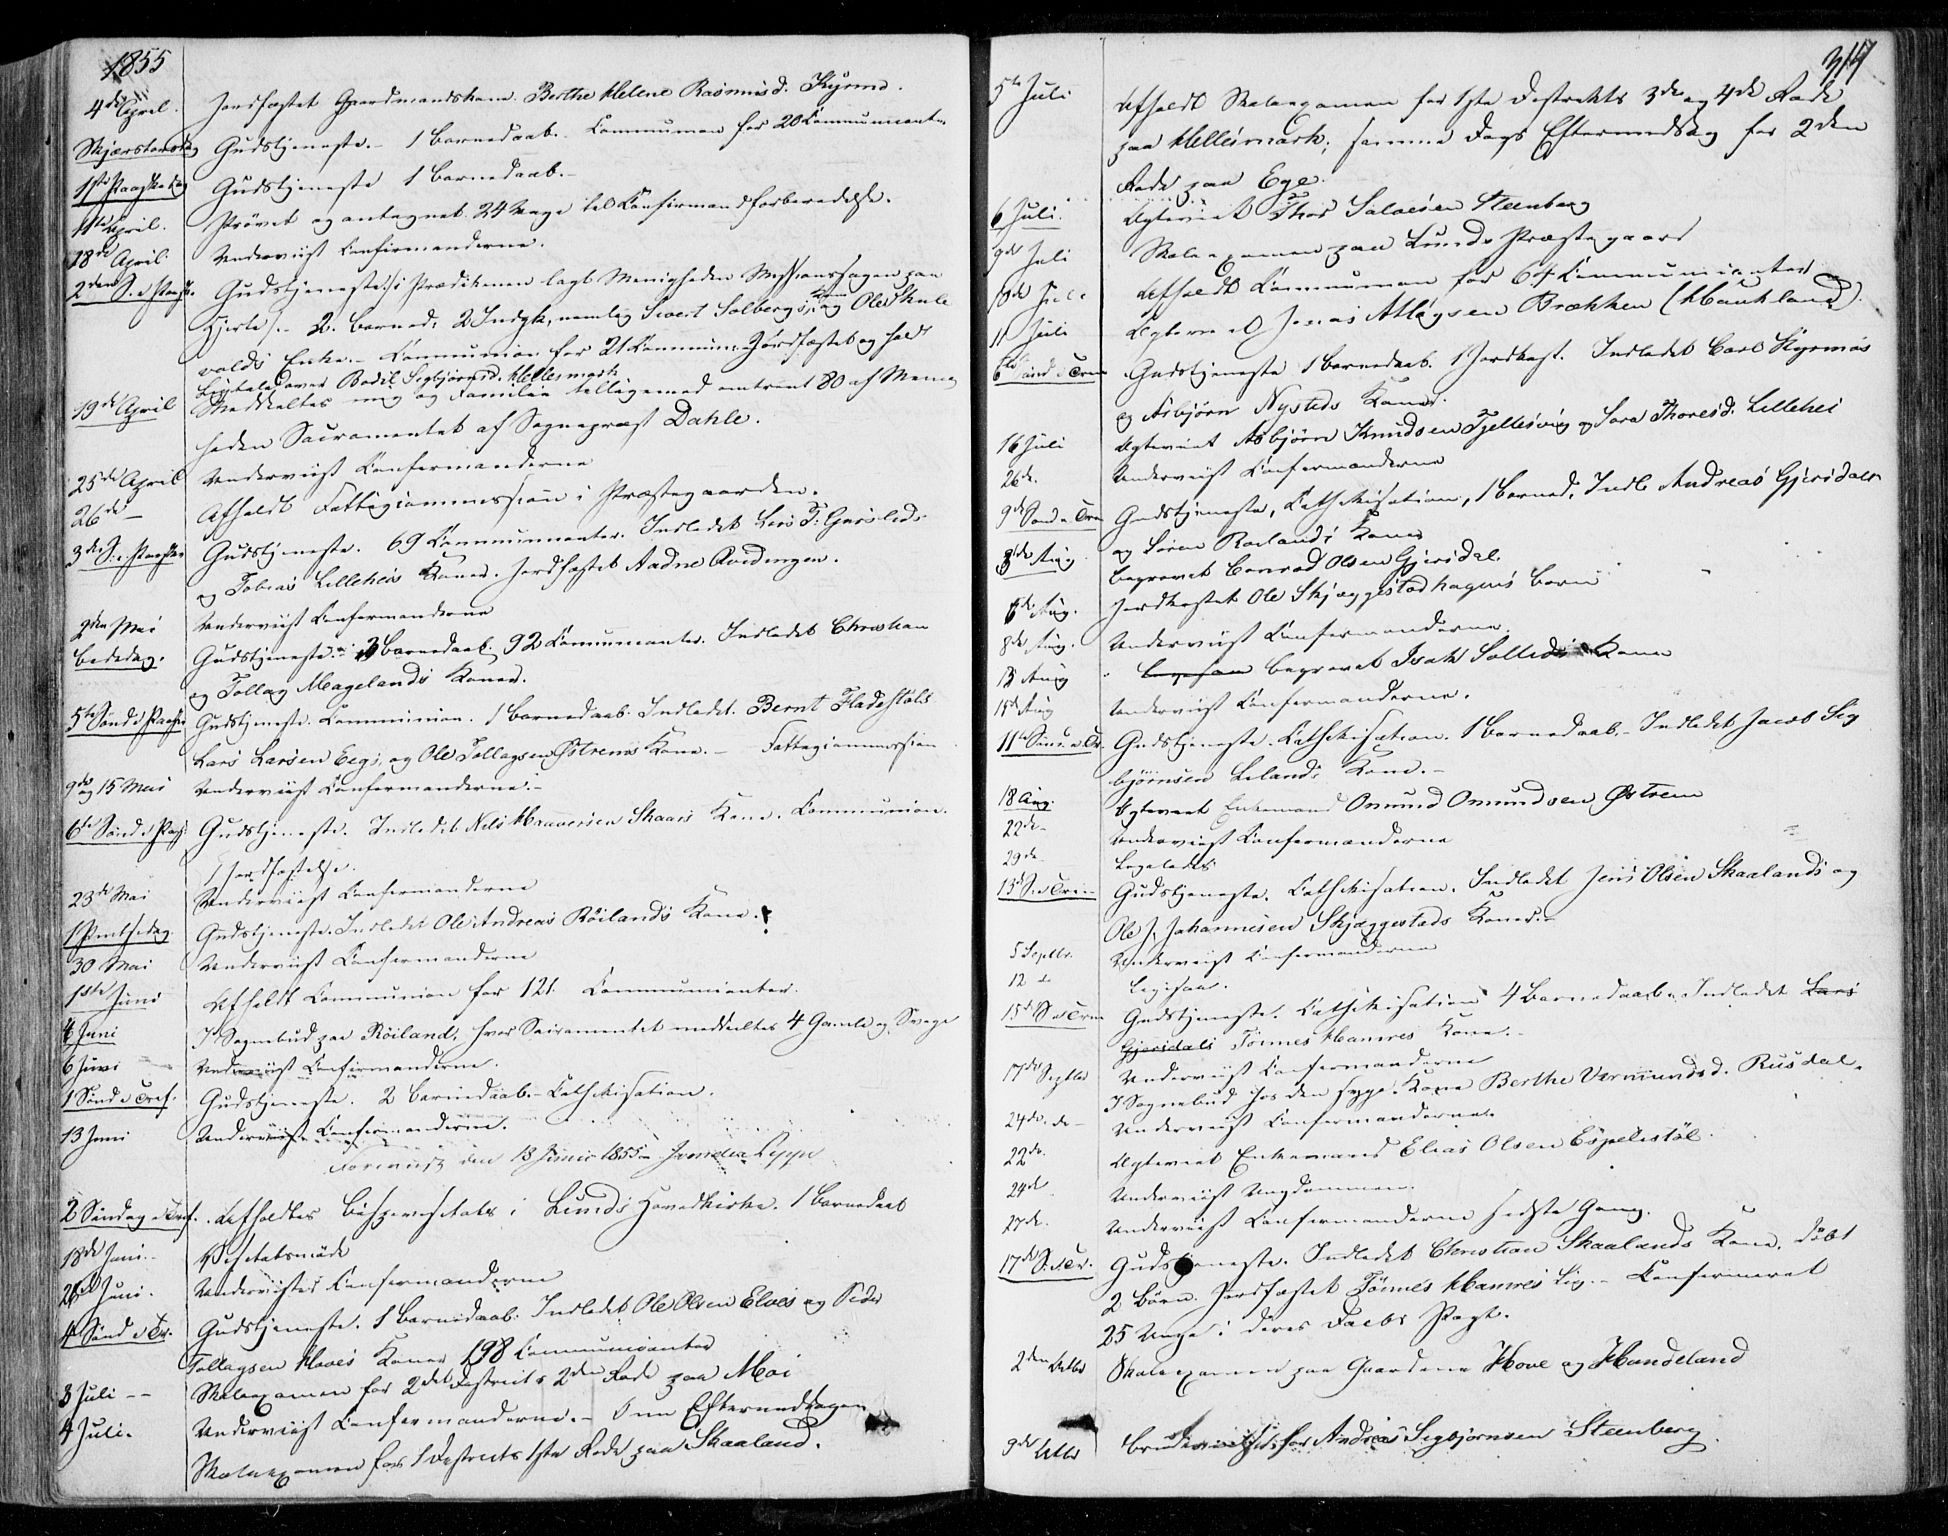 1855
4de April. Jordfæstet Gaardmandskone Berthe Helene Rasmusd. Kyrmo.
Skjærtorsdag Gudstjeneste. – 1 Barnedaab. Communion for 20 Communicanter
1ste Paaskedag Gudstjeneste 1 Barnedaab. –
11te April. Prövet og antaget 24 Unge til Confirmandforberedelse.
18de April. Underviist Confirmanderne.
2den S. e. Paaske. Gudstjeneste. I Prædikenen lagt Menigheden Missionssagen paa
Hjerte. – 2 Barned. 2 Indgk, nemlig Sivert Solbergs Kone og Ole Skule
volds Enke. – Communion for 21 Commun. Jordfæstet og holdt
Ligtale over Bodil Sigbjørnsd. Hellesmark
19de April Meddeeltes mig og Familie tilligemed omtrent 80 af Menig
heden Sacramentet af Sognepræst Dahle.
25de April Underviist Confirmanderne
26de – Afholdt Fattigcommission i Præstegaarden.
3die S. e. Paaske Gudstjeneste. 69 Communicanter. Indledet Lars T.
og Tobias Lilleheis Koner. Jordfæstet Aadne Qvedingen.
2den Mai Underviist Confirmanderne
Bededag. Gudstjeneste. 3 Barnedaab. 92 Communicanter. Indledet Christian
og Tollag Magelands Koner.
5te Sönd. e. Paaske Gudstjeneste. Communion. 1 Barnedaab. Indledet Bernt Fladestöls
Lars Larsen Eegs, og Ole Tollagsen Østrems Kone. – Fattigcommission
9de og 15 Mai Underviist Confirmanderne. –
6te Sönd e Paas. Gudstjeneste. Indledet Nels Skaars Kone. Communion.
1 Jordfæstelse.
23de Mai Underviist Confirmanderne
1 Pintsedag Gudstjeneste. Indledet Ole Andreas Röilands Kone.
30 Mai Underviist Confirmanderne
1ste Juni Afholdt Communion for 121 Communicanter.
4 Juni I Sognebud paa Röiland, hvor Sacramentet meddeeltes 4 Gamle og Svage
6 Juni Underviist Confirmanderne.
1 Sönd e Tref. Gudstjeneste. 2 Barnedaab. – Cathekisation.
13 Juni Underviist Confirmanderne.
Foreviist den 18 Junii 1855
2 Söndag e Tref. Afholdtes Bispevisitats i Lunds Hovedkirke. 1 Barnedaab
18de Juni. – Visitatsmöde
Juni. Undervistes Confirmanderne
4 Sönd e Tr. Gudstjeneste. 1 Barnedaab. Indledet Ole Olsen Elves og Peder
Tollagsen Hoves Koner 198 Communicanter
3 Juli – – Skoleexamen for 2det Destricts 2den Rode paa Moi
4 Juli. Underviist Confirmanderne. – Om Eftermiddagen
Skoleexamen for 1 Destricts 1ste Rode paa Skaaland.
5te Juli Afholdt Skoleexamen for 1ste Destrikts 3de og 4de Rode
paa Hellesmark; samme Dags Eftermiddag for 2den
Rode paa Ege.
6 Juli. Ægteviet Thor Salvesen Steenberg
9de Juli Skoleexamen paa Lunds Præstegaard
10de Juli Afholdt Communion for 64 Communicanter
11 Juli Ægteviet Jonas Atlagsen Brækken (Haukland).
6te Sönd e Trin Gudstjeneste 1 Barnedaab. 1 Jordkast. Indledet Carl Kyrmos
og Asbjørn Nysteds Koner.
16 Juli Ægteviet Asbjørn Knudsen Tjellesvig og Sara Thoresd. Lillehei
26de. Underviist Confirmanderne
9de Sönd e Trin Gudstjeneste, Cathekisation, 1 Barned. Indl. Andreas Gjersdals
og Sören Roilands Koner
Aug. begravet Conrad Olsen Gjersdal.
Aug. Jordkastet Ole Skjæggestadhagens Barn
8de Aug. Underviist Confirmanderne.
13 Aug begravet Isak Solleds Kone
15de Aug Underviist Confirmanderne.
11te Sönd. e Tr. Gudstjeneste. Cathekisation. 1 Barnedaab. – Indledet Jacob Sig
bjørnsen Lelands Kone. –
18 Aug. Ægteviet Enkemand Omund Omundsen Østrem
22de – Underviist Confirmanderne
29de Ligeledes
13de S. e Trin Gudstjeneste. Cathekisation. Indledet Jens Olsen Skaalands og
Ole J. Johannesen Skjæggestads Koner. –
5 Septbr. Underviist Confirmanderne
12 – Ligesaa.
15de S e Trin Gudstjeneste. Cathekisation 4 Barnedaab. Indledet Lars
Gjersdals Tönnes Hamres Kone. –
17de Septbr Underviist Confirmanderne
I Sognebud hos den syge Kone Berthe Vermundsd. Rusdal.
de – Underviist Confirmanderne.
22de. Ægteviet Enkemand Elias Olsen Espelistöl.
24de Underviist Ungdommen.
27de. Underviist Confirmanderne sidste Gang.
17de S. e Tr. Gudstjeneste. Indledet Christian Skaalands Kone. Döbt
2 Börn. Jordfæstet Tönnes Hamres Lig. – Confirmeret
25 Unge i deres Daabs Pagt.
2den Octbr Skoleexamen paa Gaardene Hove og Handeland
9de Octbr Brudevielse for Andreas Segbjørnsen Steenberg.